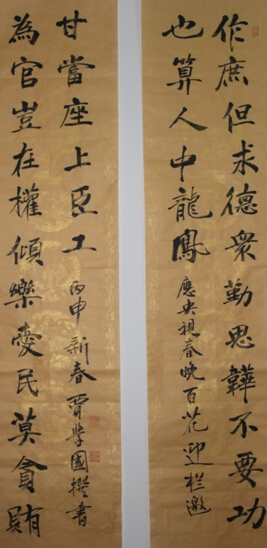 作庶但求德衆勤思韡不要功
也算人中龍鳳
應央視春晚百花迎栏邀
為官豈在權傾樂愛民莫貪賄
甘當座上臣工
丙申新春賈學國撰書